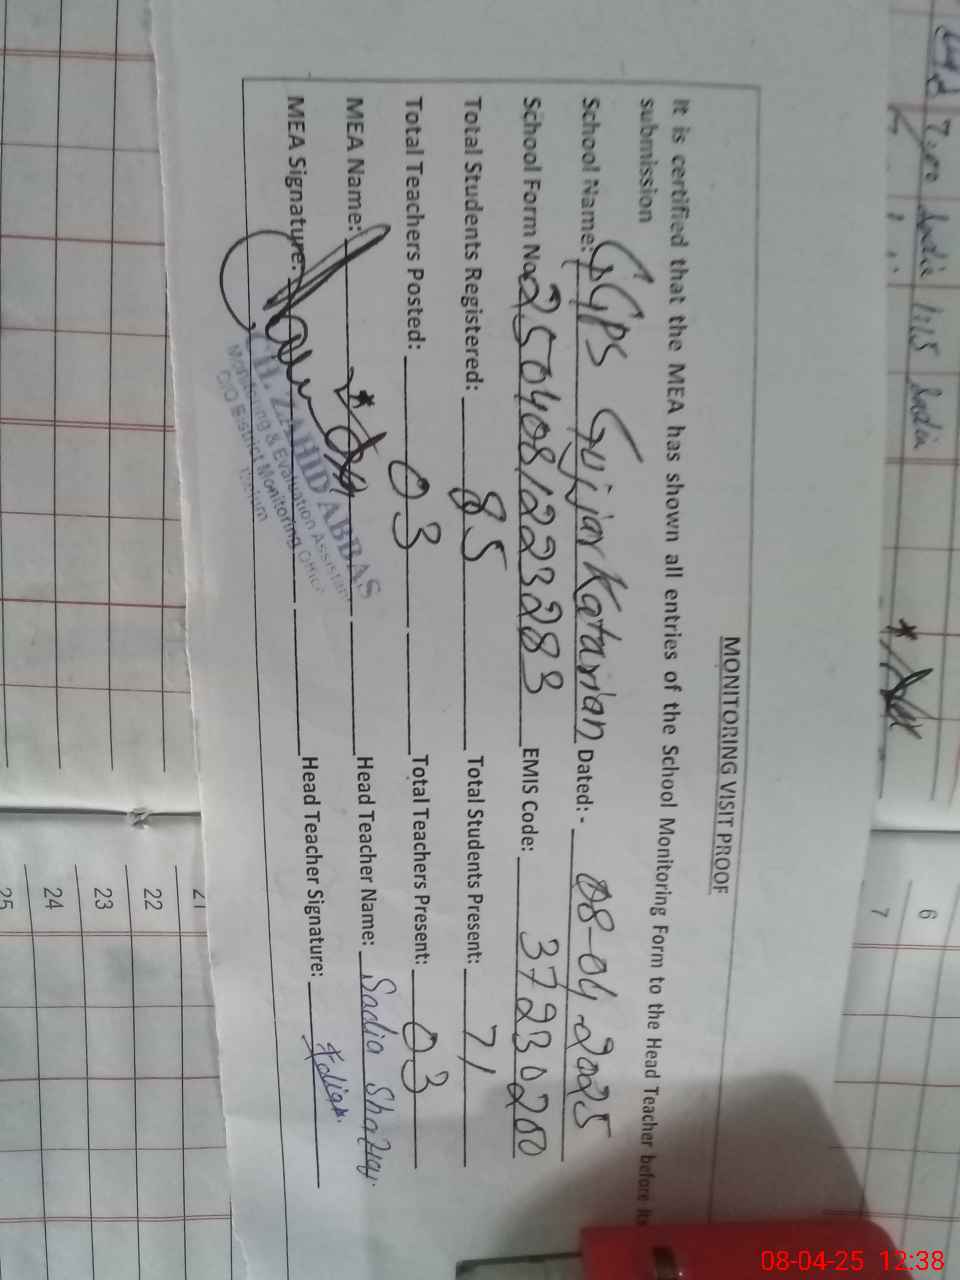 MONITORING VISIT PROOF
It is certified that the MEA has shown all entries of the School Monitoring Form to the Head Teacher before its
submission
School Name: GGPS Gujjar Katarian Dated:- 08-04-2025
School Form No. 2504081223283 EMIS Code: 37230200
Total Students Registered: 85 Total Students Present: 71
Total Teachers Posted: 03 Total Teachers Present: 03
MEA Name: Head Teacher Name: Sadia
MEA Signature: Head Teacher Signature:
CH. ZAHID ABBAS
Monitoring & Evaluation Assistant
O/O District Monitoring Officer
6
7
21
22
23
24
25
08-04-25 12:38